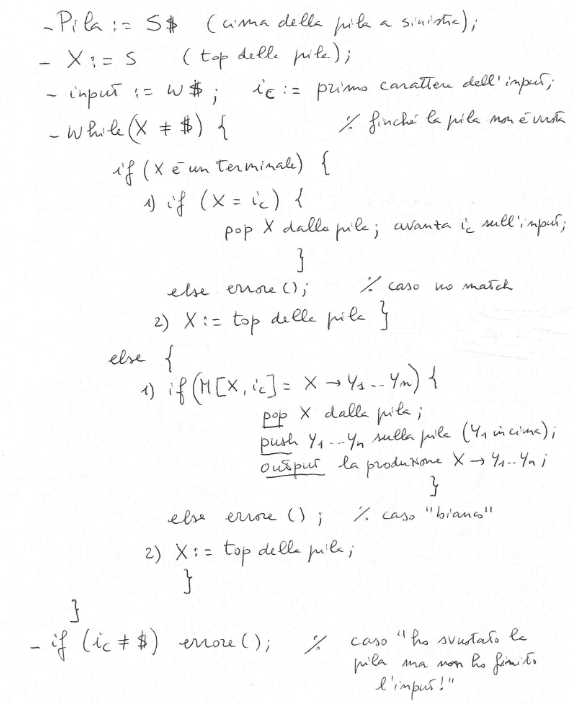 - Pila := S$ (cima della pila a sinistra);
- X := S (top della pila);
- input := w$; ic := primo carattere dell'input;
- While (X ≠ $) { % finché la pila non è vuota
if (X è un terminale) {
1) if (X = ic) {
pop X dalla pila; avanza ic sull'input;
}
else errore(); % caso no match
2) X := top della pila }
else {
1) if (M[X, ic] = X → Y1 … Yn) {
pop X dalla pila;
push Y1 … Yn sulla pila (Y1 in cima);
output la produzione X → Y1 … Yn;
}
else errore(); % caso "bianco"
2) X := top della pila;
}
}
- if (ic ≠ $) errore(); % caso "ho svuotato la
pila ma non ho finito
l'input!"